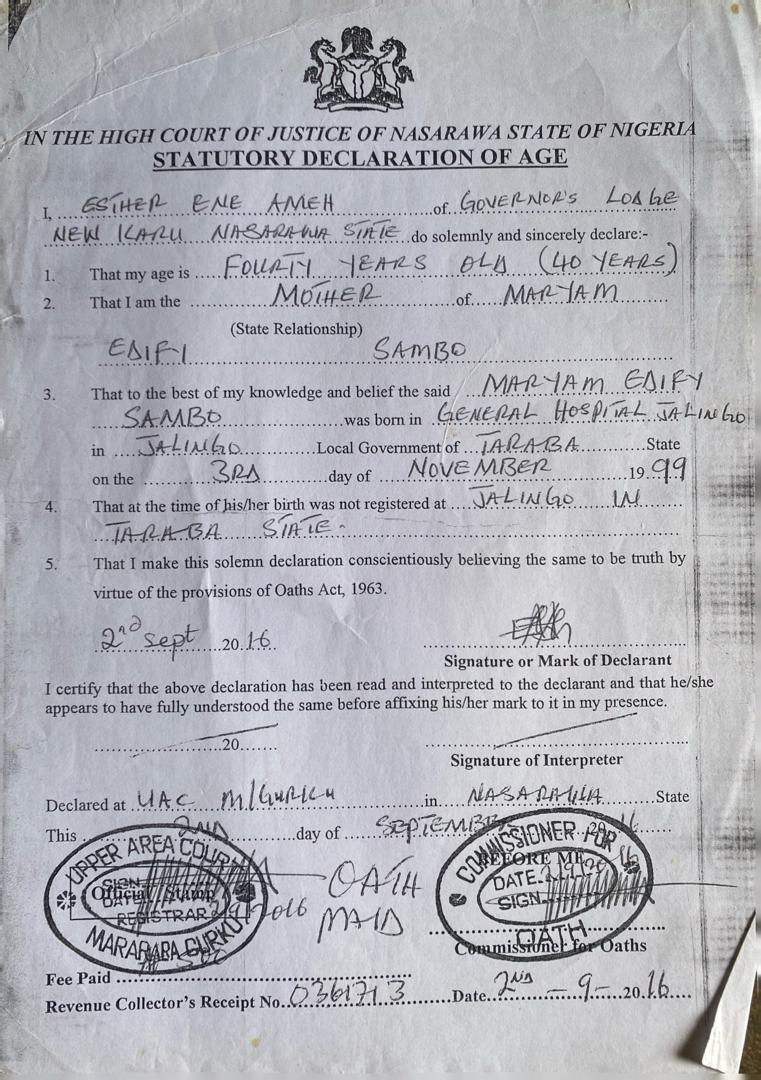 IN THE HIGH COURT OF JUSTICE OF NASARAWA STATE OF NIGERIA
STATUTORY DECLARATION OF AGE
I, ESTHER ENE AMEH of GOVERNOR'S LODGE
NEW KARU NASARAWA STATE do solemnly and sincerely declare:-
1. That my age is FOURTY YEARS OLD (40 YEARS)
2. That I am the MOTHER of MARYAM
(State Relationship)
EDIFI SAMBO
3. That to the best of my knowledge and belief the said MARYAM EDIFY
SAMBO was born in GENERAL HOSPITAL JALINGO
in JALINGO Local Government of TARABA State
on the 3RD day of NOVEMBER 1999
4. That at the time of his/her birth was not registered at JALINGO IN
TARABA STATE.
5. That I make this solemn declaration conscientiously believing the same to be truth by
virtue of the provisions of Oaths Act, 1963.
2nd sept 2016
Signature or Mark of Declarant
I certify that the above declaration has been read and interpreted to the declarant and that he/she
appears to have fully understood the same before affixing his/her mark to it in my presence.
20
Signature of Interpreter
Declared at UAC M/GURKU in NASARAWA State
This 2ND day of SEPTEMBER 2016
UPPER AREA COURT
Official Stamp
SIGN
DATE
REGISTRAR
MARARABA GURKU
OATH
MAID
COMMISSIONER FOR
BEFORE ME
DATE
SIGN
OATH
Commissioner for Oaths
Fee Paid
Revenue Collector's Receipt No. 0361713 Date 2ND - 9 - 2016